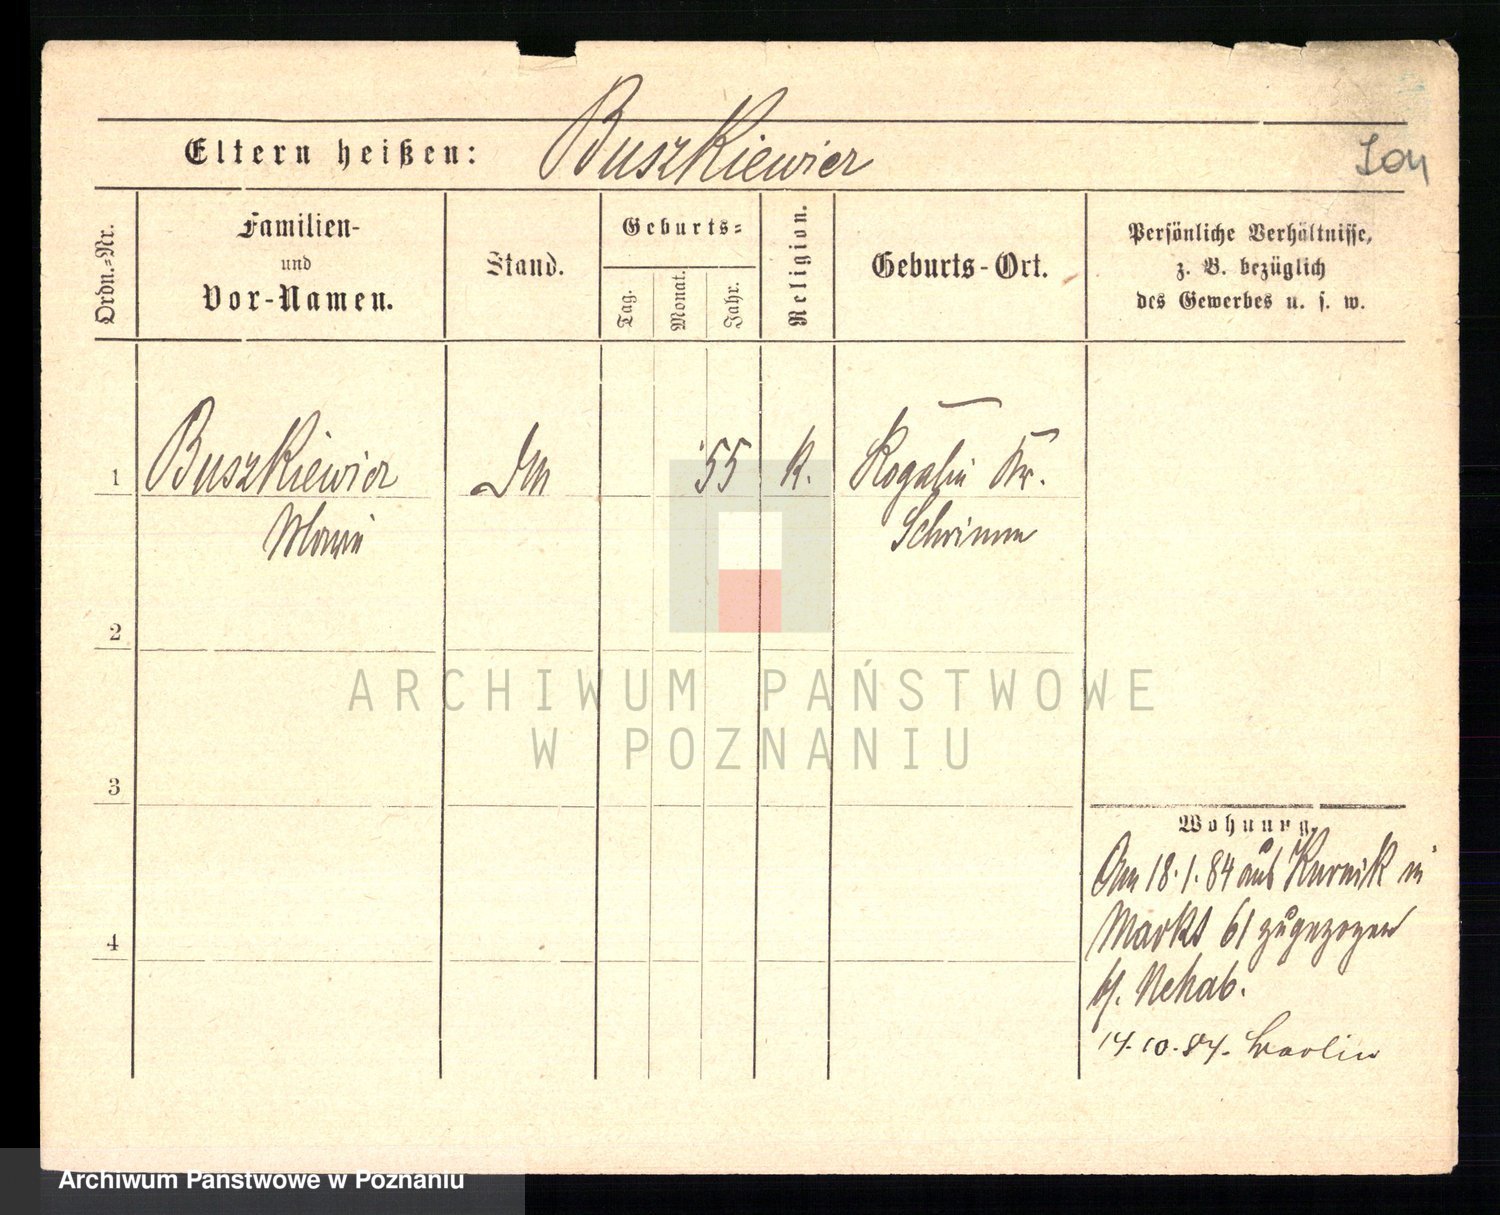 Eltern heißen: Buszkiewicz
Ordn.-Nr.
Familien-
und
Vor-Namen.
Stand.
Geburts-
Tag.
Monat.
Jahr.
Religion.
Geburts-Ort.
Persönliche Verhältnisse,
z. B. bezüglich
des Gewerbes u. s. w.
1 Buszkiewicz 55 k. Rogalin Kr.
Marie Schrimm
2
3
4
Wohnung.
Am 18.1.84 aus Kurnik in
Markt 61 zugezogen
b/. Nehab.
14.10.84.
ARCHIWUM PAŃSTWOWE
W POZNANIU
Archiwum Państwowe w Poznaniu